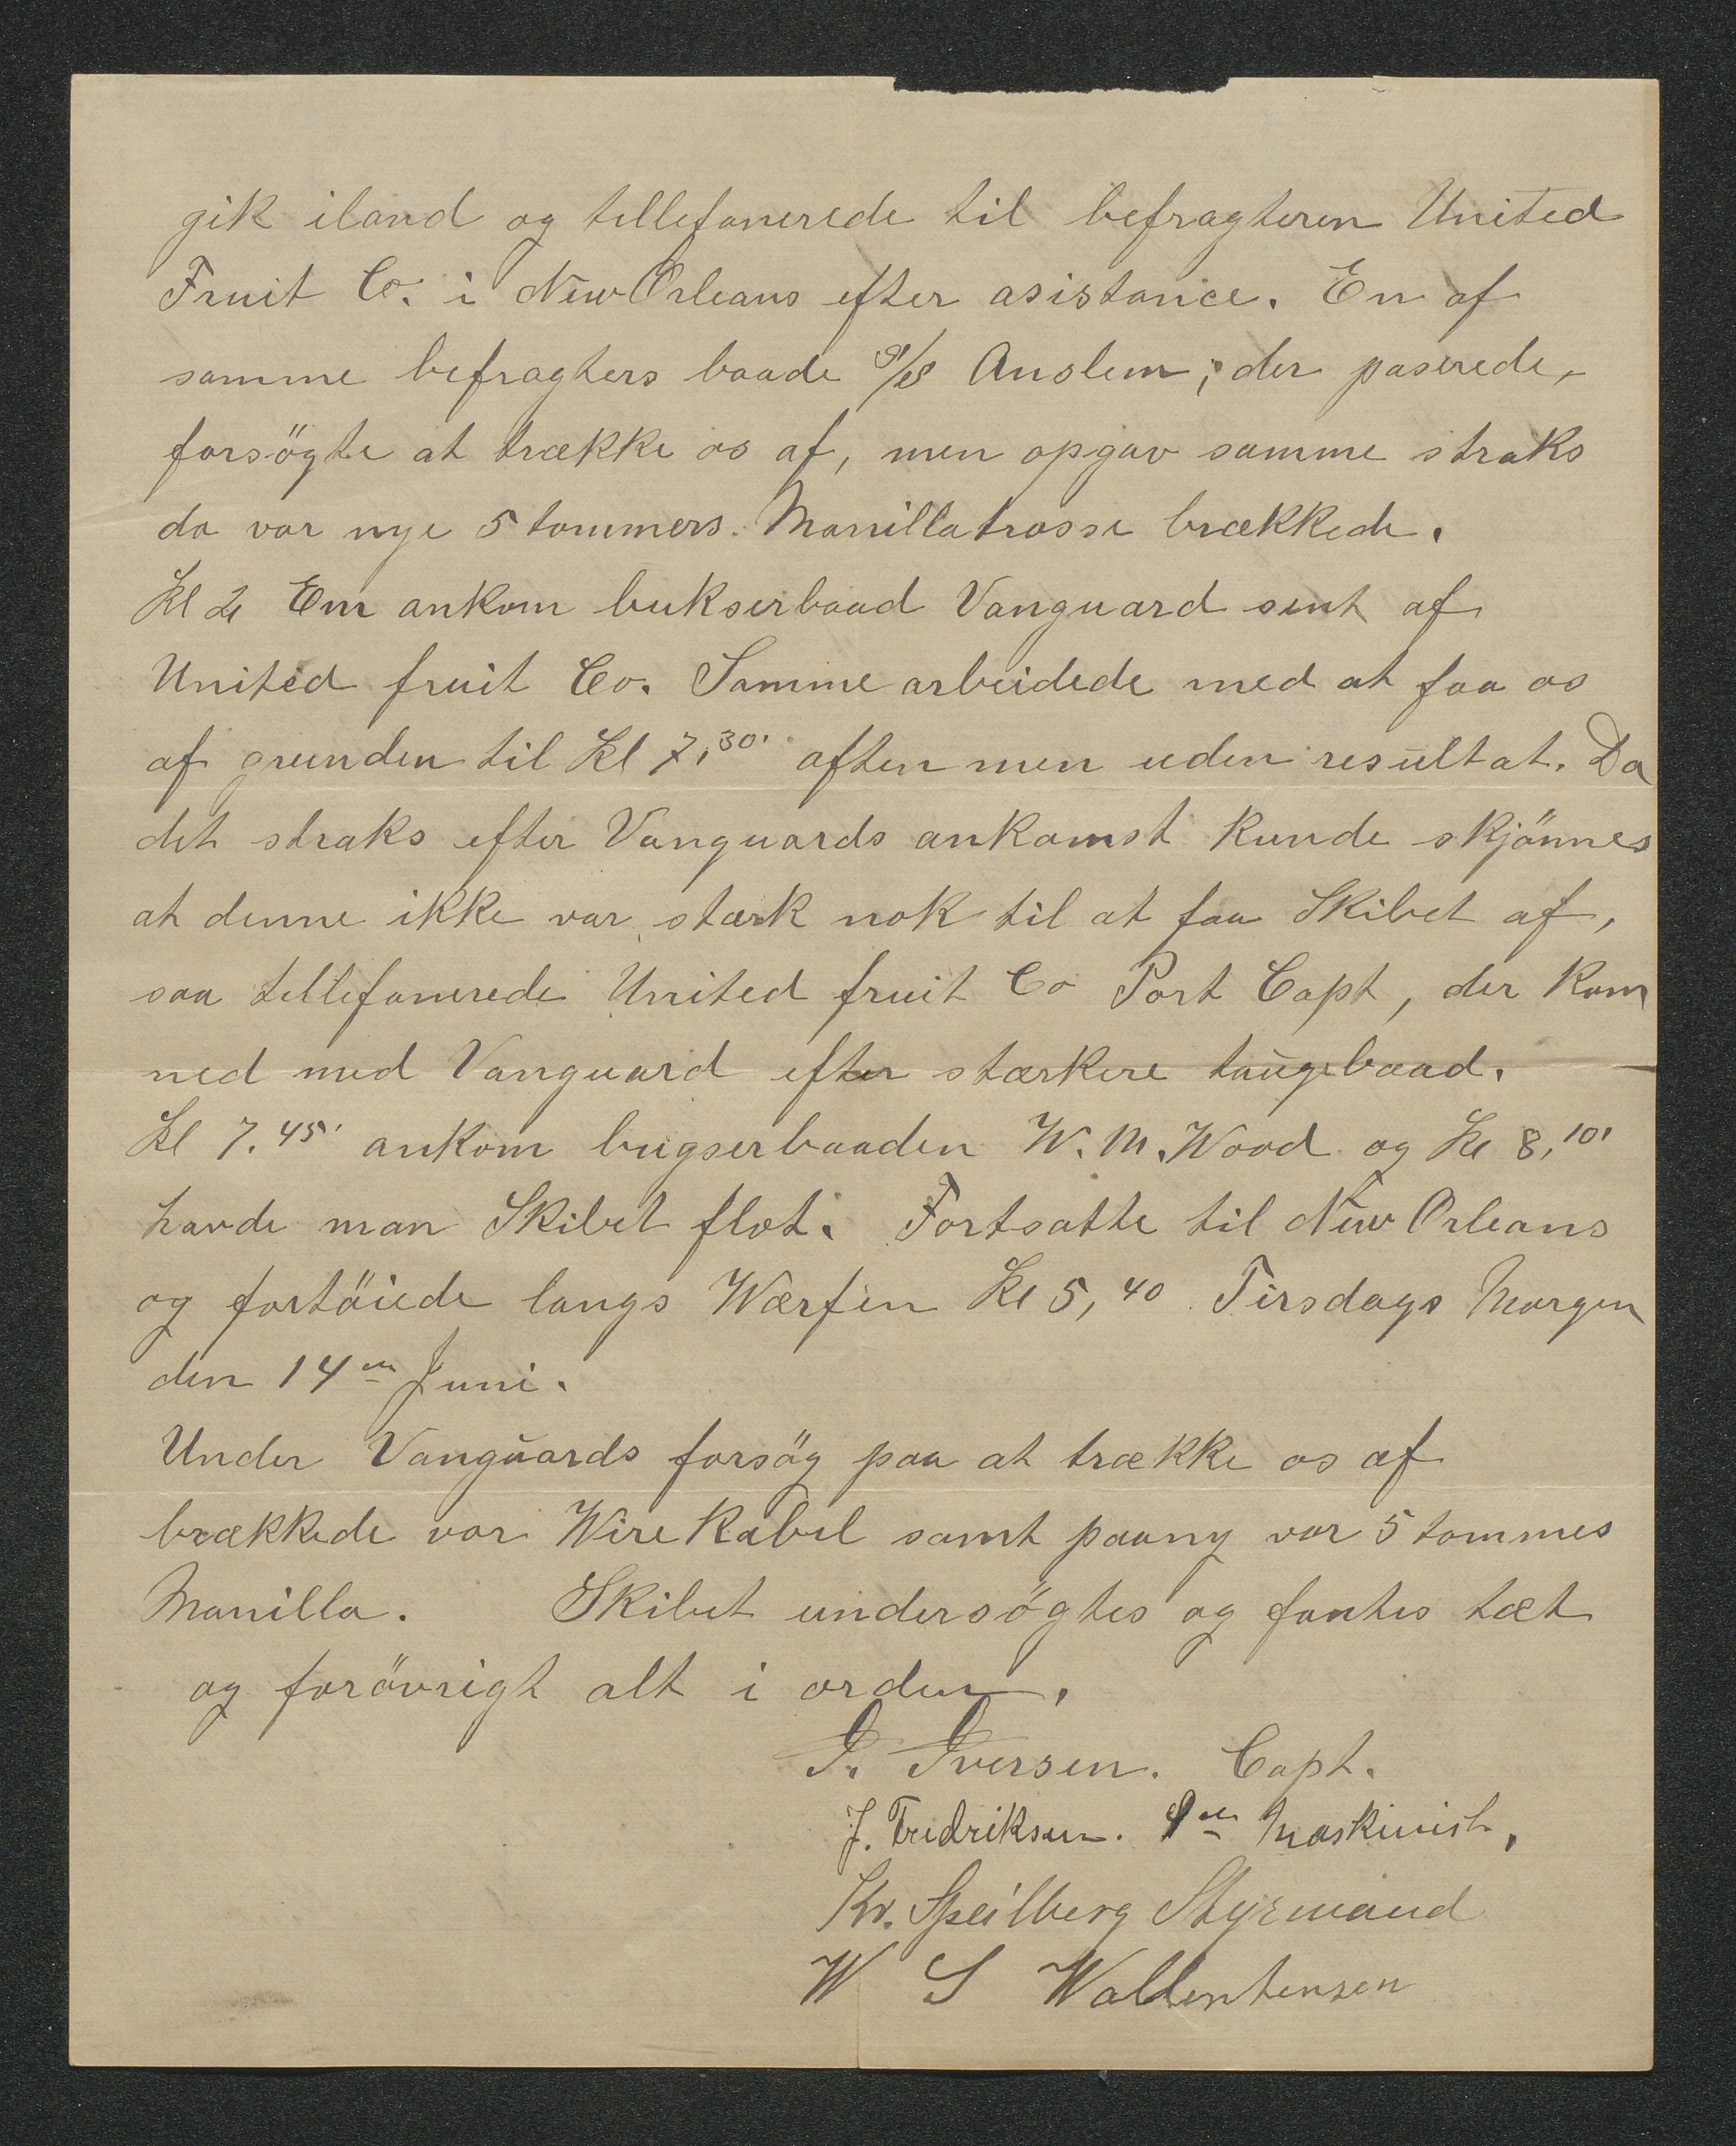 gik iland og tellefonerede til befragteren United
Fruit Co. i New Orleans efter asistance. En af
samme befragters baade S/S Anslem, der paserede,
forsögte at trække os af, men opgav samme straks
da vor nye 5 tommers. Manillatrosse brækkede.
Kl 2 Em ankom bukserbaad Vanguard sent af
United fruit Co. Samme arbeidede med at faa os
af grunden til Kl 7,30' aften men uden resultat. Da
det straks efter Vanguards ankomst kunde skjönnes
at denne ikke var stærk nok til at faa Skibet af,
saa tellefonerede United fruit Co Port Capt, der kom
ned med Vanguard efter stærkere taugebaad.
Kl 7.45' ankom bugserbaaden W. M. Wood og Kl 8,10'
havde man Skibet flot. Fortsatte til New Orleans
og fortöiede langs Wærfen Kl 5,40 Tirsdags Morgen
den 14en Juni.
Under Vanguards forsög paa at trække os af
brækkede vor Wire Kabel samt paany vor 5 tommes
Manilla. Skibet undersögtes og fantes tæt
og forövrigt alt i orden.
I. Iversen. Capt.
J. Fredriksen. 1en Maskinist,
Kr. Speilberg Styrmand
W S Wallentensen